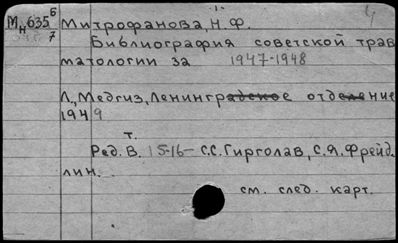 Мн635 6/7 Митрофанова, Н.Ф.
Библиография советской трав
матологии за 1947-1948
Л., Медгиз, Ленинградское отделение
1949
т.
Ред. В. 15-16 - С.С. Гирголав, С.Я. Фрейд
лин.
см. след. карт.